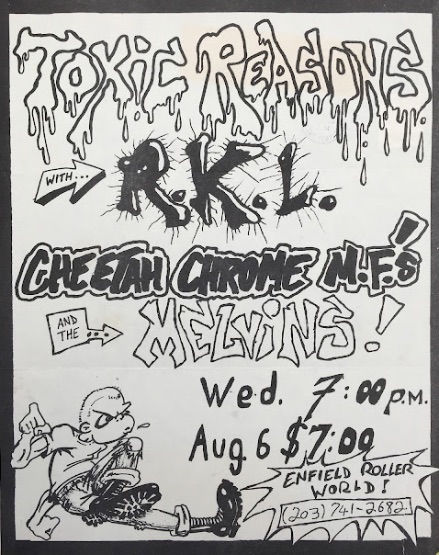 TOXIC REASONS
WITH...
R.K.L.
CHEETAH CHROME M.F.'s
AND THE ...
MELVINS!
Wed. 7:00 P.M.
Aug. 6 $7:00
ENFIELD ROLLER
WORLD!
(203) 741-2682